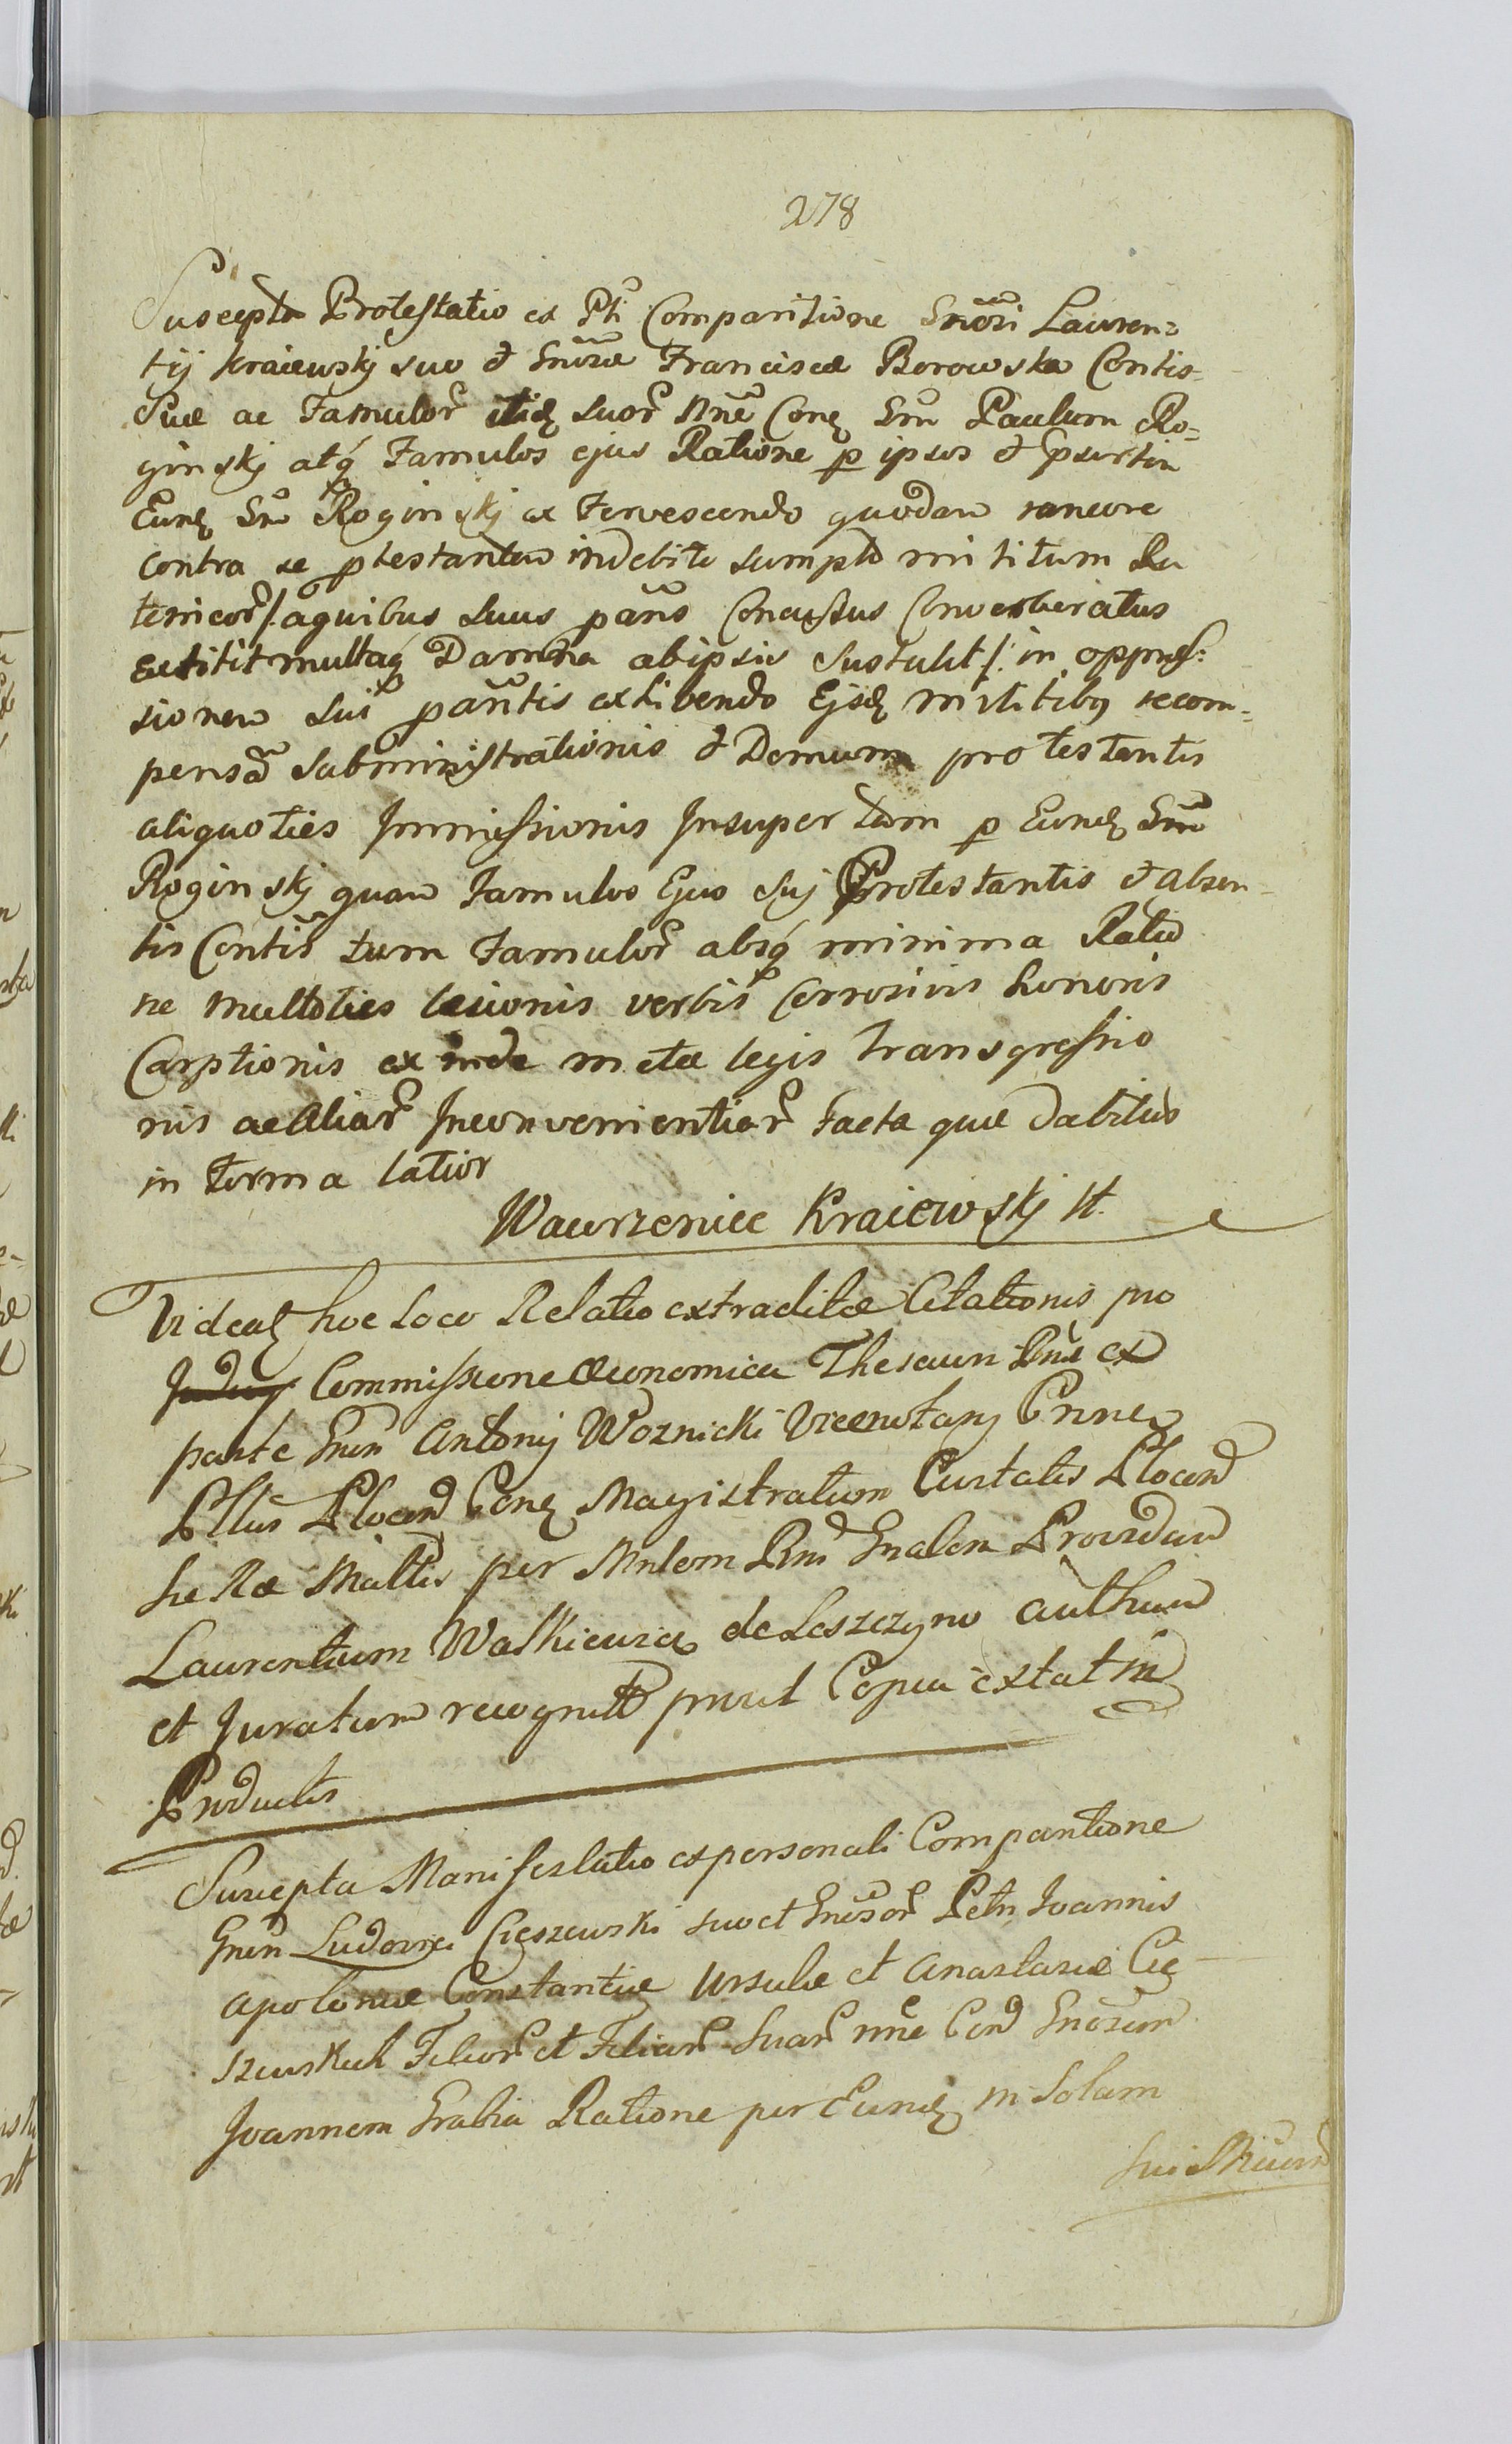 278
Suscepta Protestatio ex Pli Comparitione Gnosi Lauren=
tij Kraiewskj suo et Gnosæ Franciscæ Borowska Contis
Suæ ac Famulor itidq suor Nne Conq Gnm Paulum Ro=
ginskj atq Famulos ejus Ratione p ipsos et psertim
Eundq Gnm Roginskj ex fervescendo quodam rancore
contra se ptestantem indebite sumpto militum Ru
tenicor /: a quibus suus pans Concussus Converberatus
extitit multaq Damna ab ipsis sustulit /: in oppres=
sionem sui pantis exhibendo Ejsdq militibq recom=
pensa subministrationis et Domum protestantis
aliquoties Immissionis Insuper tam p Eundq Gnm
Roginskj quam Famulos Ejus sui Protestantis et absen=
tis Contis tum Famulor absq minima Ratio
ne multoties læsionis verbis Corrosivis honoris
Carptionis ex inde metæ legis transgressio
nis ac aliar Inconvenientiar facta quæ dabitur
in forma latior
Wawrzeniec Kraiewskj
Videatq hoc Loco Relatio extraditæ Citationis pro
Commissione Œconomica Thesauri ex
parte Gnsi Antonij Woznicki Vicenotarij
Conq Magistratum Curtatis
per Gnalem Providum
Laurentium Walkiewicz de Leszczyno authum
et Juratum recognita prout Copia extat in
Productis
Suscepta Manifestatio ex personali Comparitione
Gnsi Ludovici Cięszewski suo et Gnosor Petri Joannis
Apoloniæ Constantiæ Ursulæ et Anastasiæ Cię
szewskich Filior et Filiar Suar nne Con Gnosum
Joannem Grabia Ratione per Eundq in Solam
Sui